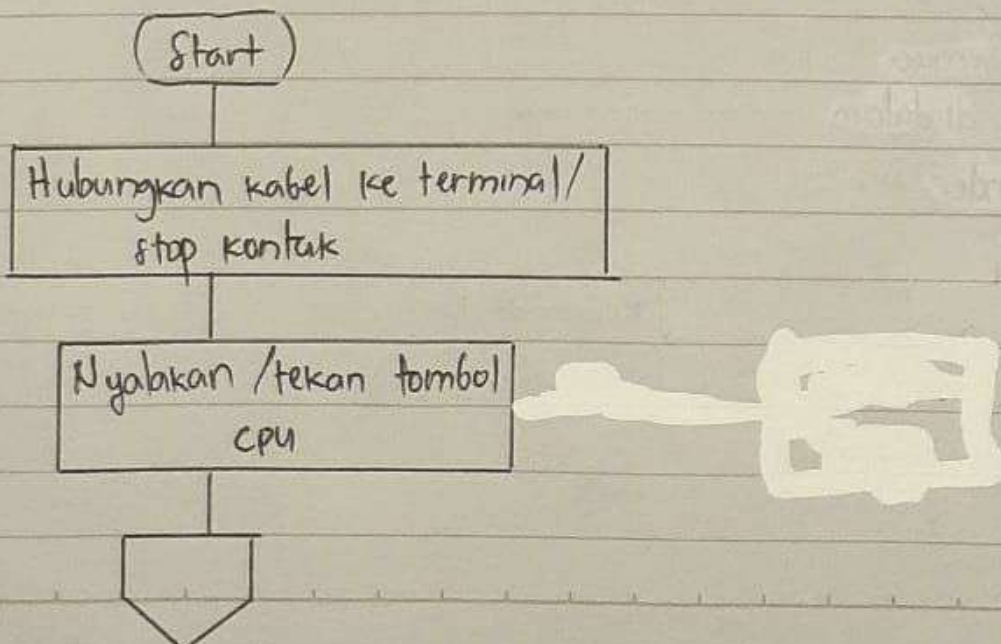 Start
Hubungkan kabel ke terminal/
stop kontak
Nyalakan /tekan tombol
cpu